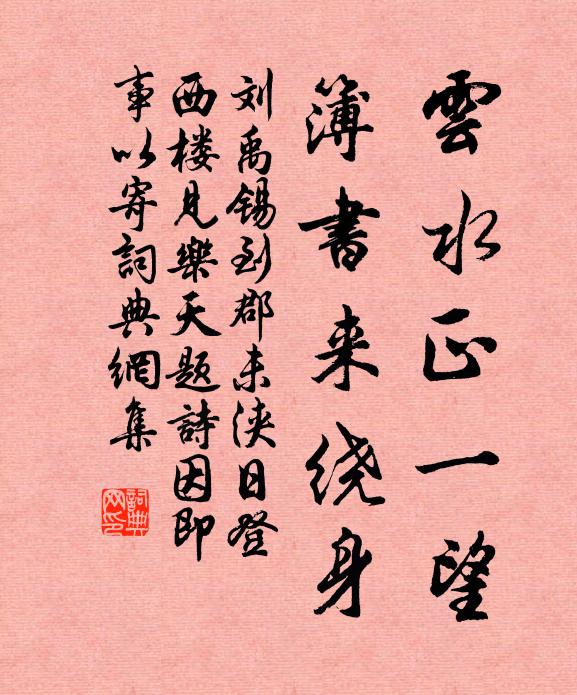 雲水正一望
簿書来绕身
刘禹锡到郡未浃日登
西楼见樂天题詩因即
事以寄詞典網集
詞典网印